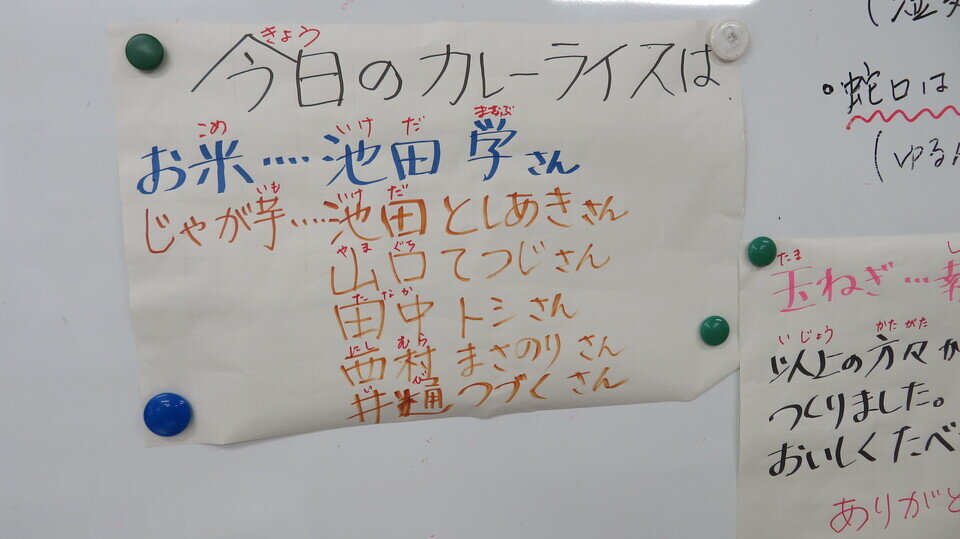 きょう
今日のカレーライスは
こめ いけ だ まなぶ
お米‥‥池田 学さん
いも いけ だ
じゃが芋‥‥池田としあきさん
やま ぐち
山口てつじさん
た なか
田中 トシさん
にし むら
西村 まさのりさん
い び
井樋つづくさん
蛇口は
(ゆる
たま
玉ねぎ…
いじょう かたがた
以上の方々か
つくりました。
おいしくたべ
ありがと